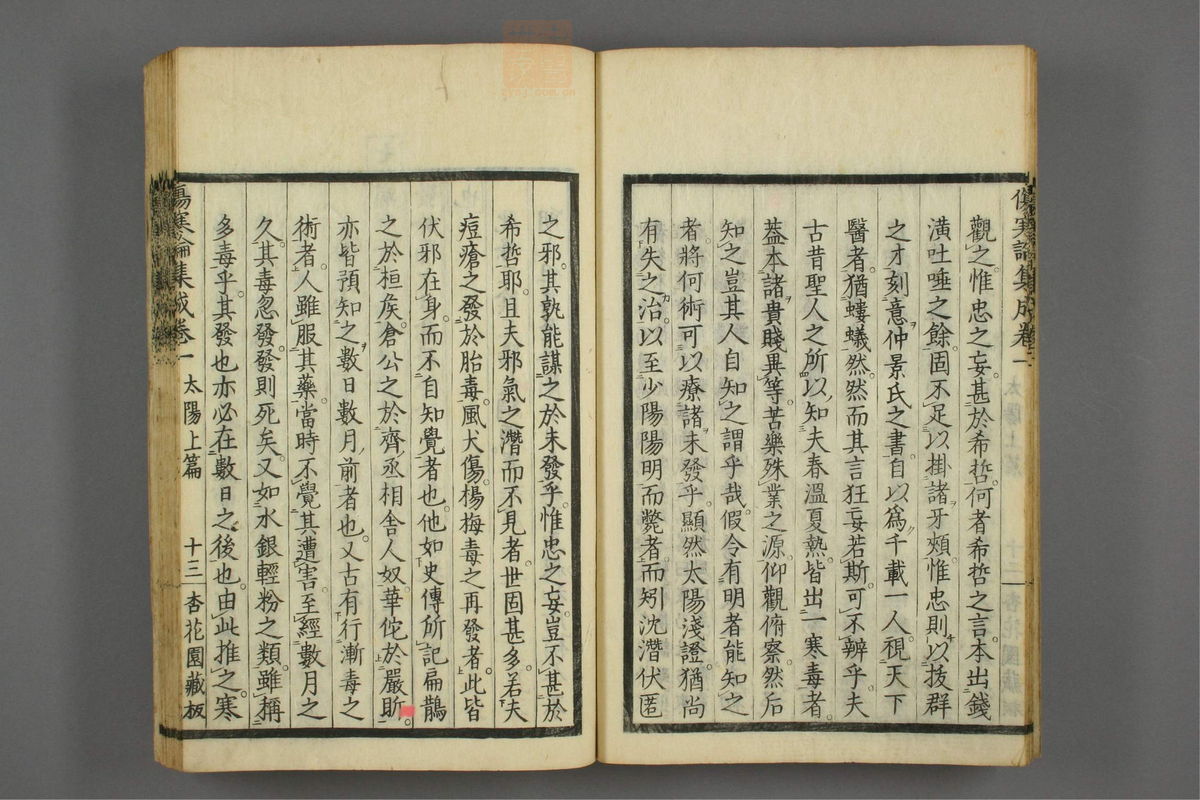 傷寒論集成卷一
觀之惟忠之妄甚於希哲何者希哲之言本出錢
潢吐唾之餘固不足以掛諸牙頰惟忠則以拔群
之才刻意仲景氏之書自以爲千載一人視天下
醫者猶螻蟻然然而其言狂妄若斯可不辨乎夫
古昔聖人之所以知夫春溫夏熱皆出一寒毒者
葢本諸貴賤異等苦樂殊業之源仰觀俯察然后
知之豈其人自知之謂乎哉假令有明者能知之
者將何術可以療諸未發乎顯然太陽淺證猶尚
有失之治以至少陽陽明而斃者而矧沈潛伏匿
之邪其孰能謀之於未發乎惟忠之妄豈不甚於
希哲耶且夫邪氣之潛而不見者世固甚多若夫
痘瘡之發於胎毒風犬傷楊梅毒之再發者此皆
伏邪在身而不自知覺者也他如史傳所記扁鵲
之於桓矦倉公之於齊丞相舍人奴華佗於嚴昕
亦皆預知之數日數月前者也又古有行漸毒之
術者人雖服其藥當時不覺其遭害至經數月之
久其毒忽發發則死矣又如水銀輕粉之類雖稱
多毒乎其發也亦必在數日之後也由此推之寒
傷寒論集成卷一 太陽上篇 十三 杏花園藏板